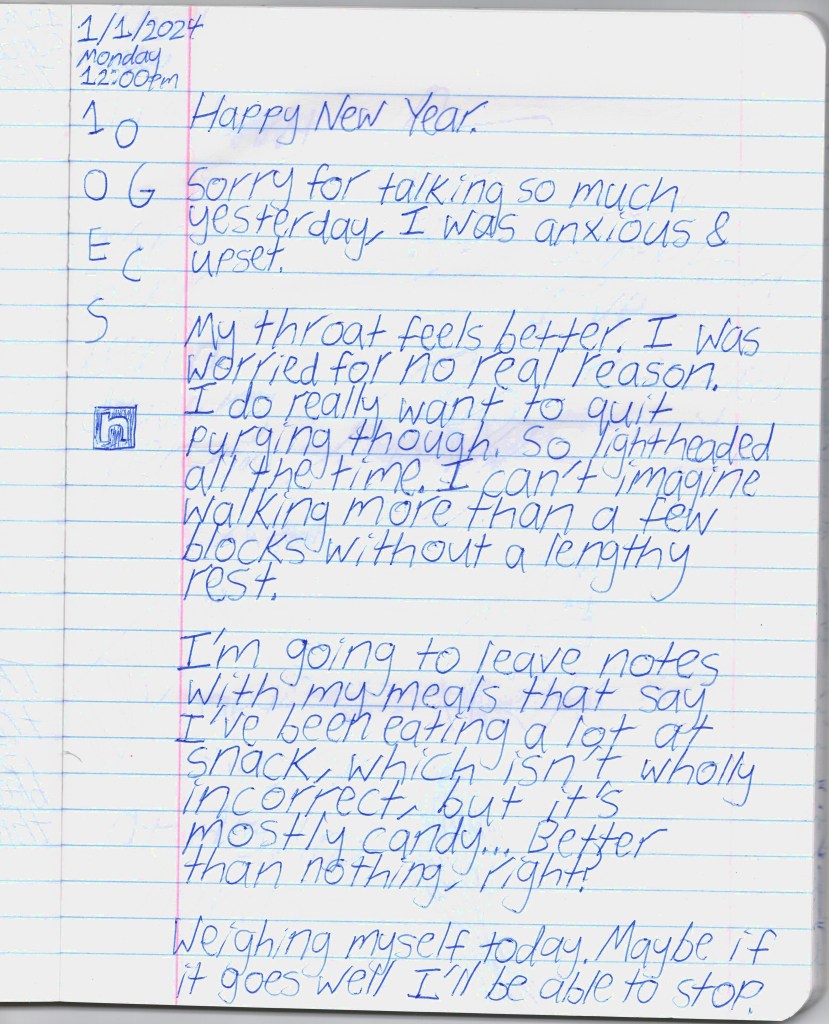 1/1/2024
Monday
12:00pm
1 O
Happy New Year.
O G
Sorry for talking so much
yesterday, I was anxious &
E C
upset.
S
My throat feels better. I was
worried for no real reason.
I do really want to quit
purging though. So lightheaded
all the time. I can't imagine
walking more than a few
blocks without a lengthy
rest.
h
I'm going to leave notes
with my meals that say
I've been eating a lot at
snack, which isn't wholly
incorrect, but it's
mostly candy... Better
than nothing, right?
Weighing myself today. Maybe if
it goes well I'll be able to stop?